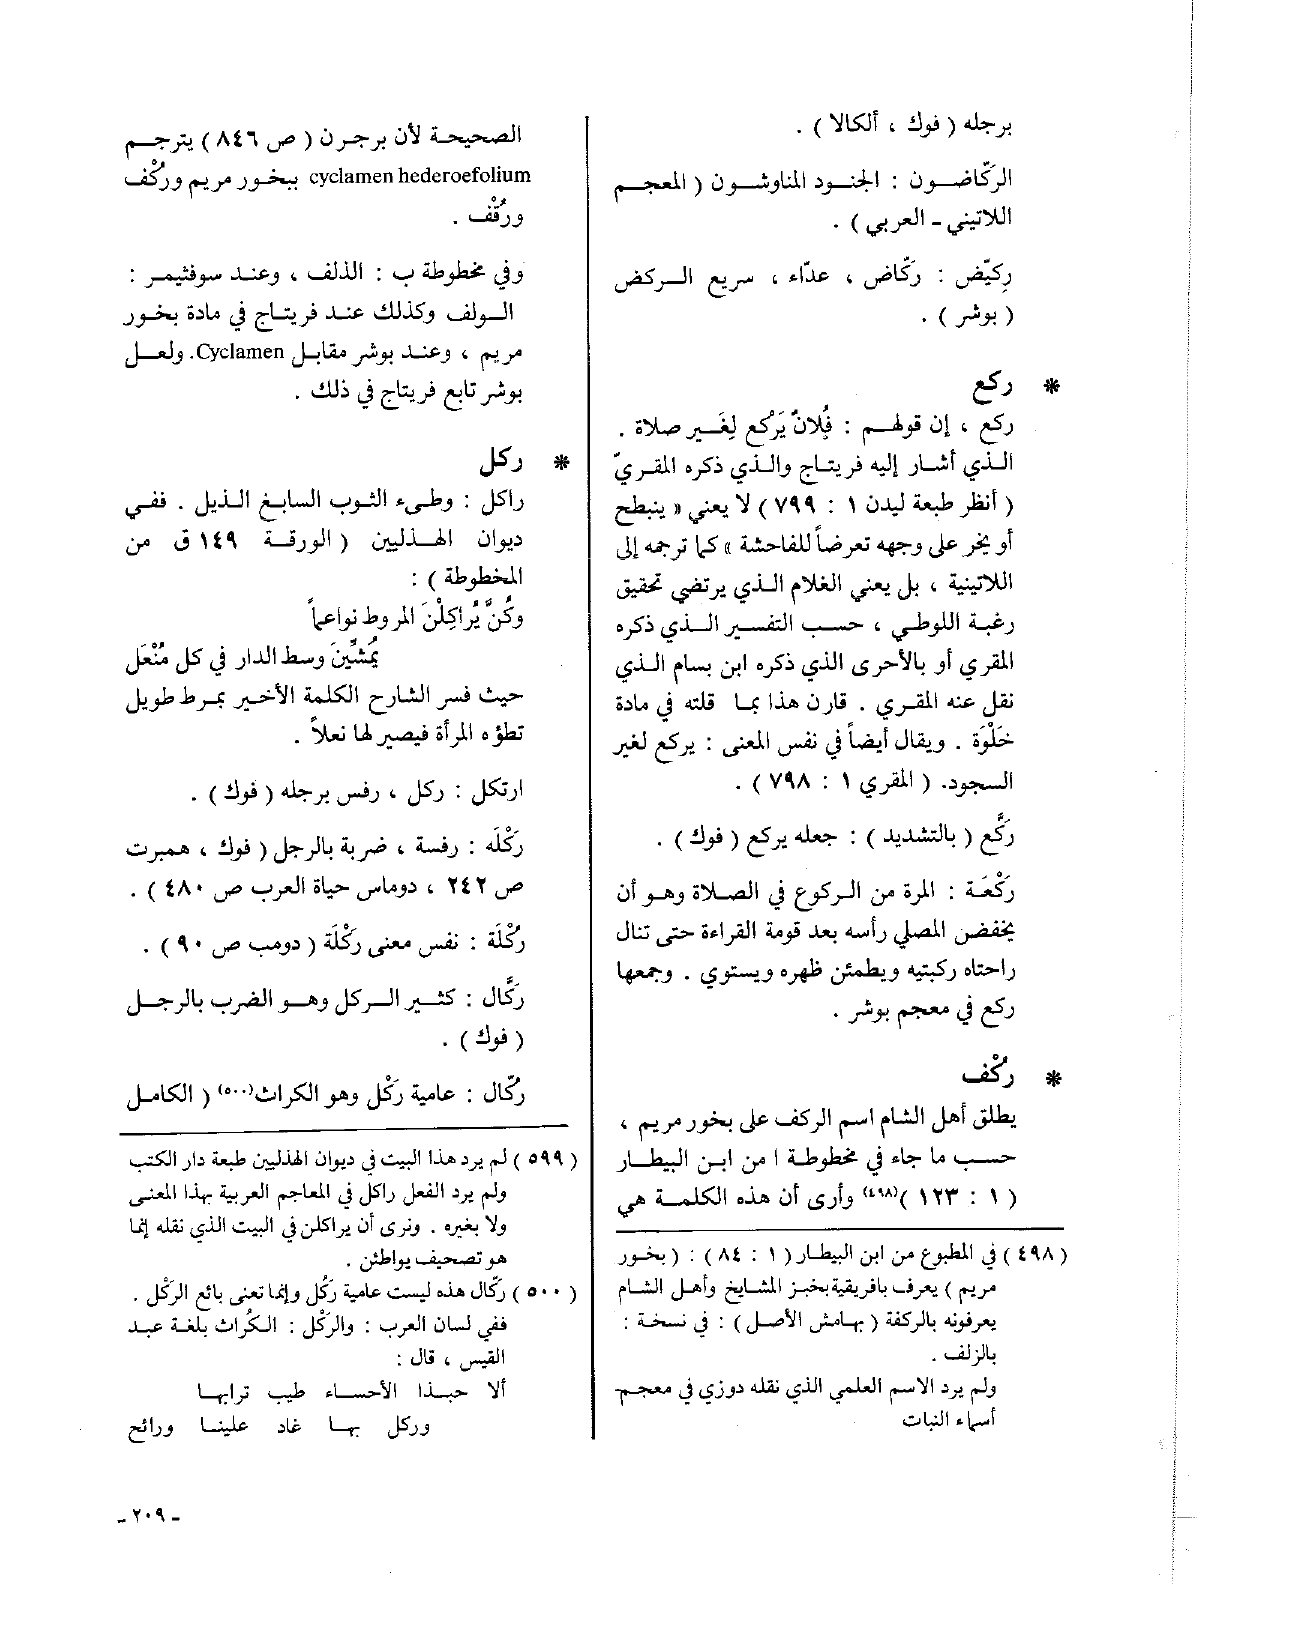 برجله ( فوك ، ألكالا ) .
الركّاضون : الجنود المناوشون ( المعجم
اللاتيني - العربي ) .
رِكيّض : ركّاض ، عدّاء ، سريع الركض
( بوشر ) .
* ركع
ركع ، إن قولهم : فُلانٌ يَرْكع لِغَير صلاة .
الذي أشار إليه فريتاج والذي ذكره المقريّ
( أنظر طبعة ليدن ١ : ٧٩٩ ) لا يعني « ينبطح
أو يخر على وجهه تعرضاً للفاحشة » كما ترجمه إلى
اللاتينية ، بل يعني الغلام الذي يرتضي تحقيق
رغبة اللوطي ، حسب التفسير الذي ذكره
المقري أو بالأحرى الذي ذكره ابن بسام الذي
نقل عنه المقري . قارن هذا بما قلته في مادة
خَلْوَة . ويقال أيضاً في نفس المعنى : يركع لغير
السجود. ( المقري ١ : ٧٩٨ ) .
ركَّع ( بالتشديد ) : جعله يركع ( فوك ) .
رَكْعَة : المرة من الركوع في الصلاة وهو أن
يخفض المصلي رأسه بعد قومة القراءة حتى تنال
راحتاه ركبتيه ويطمئن ظهره ويستوي . وجمعها
ركع في معجم بوشر .
* ركْف
يطلق أهل الشام اسم الركف على بخور مريم ،
حسب ما جاء في مخطوطة ا من ابن البيطار
( ١ : ١٢٣ )(٤٩٨) وأرى أن هذه الكلمة هي
( ٤٩٨ ) في المطبوع من ابن البيطار ( ١ : ٨٤ ) : ( بخور
مريم ) يعرف بافريقية بخبز المشايخ وأهل الشام
يعرفونه بالركفة ( بهامش الأصل ) : في نسخة :
بالزلف .
ولم يرد الاسم العلمي الذي نقله دوزي في معجم
أسماء النبات
الصحيحة لأن برجرن ( ص ٨٤٦ ) يترجم
cyclamen hederoefolium ببخور مريم وركْف
ورقْف .
وفي مخطوطة ب : الذلف ، وعند سوفثيمر :
الولف وكذلك عند فريتاج في مادة بخور
مريم ، وعند بوشر مقابل Cyclamen. ولعل
بوشر تابع فريتاج في ذلك .
* ركل
راكل : وطىء الثوب السابغ الذيل . ففي
ديوان الهذليين ( الورقة ١٤٩ ق من
المخطوطة ) :
وكُنَّ يُراكِلْنَ المروط نواعماً
يُمشِّينَ وسط الدار في كل مُنْعَل
حيث فسر الشارح الكلمة الأخير بمرط طويل
تطؤه المرأة فيصير لها نعلاً .
ارتكل : ركل ، رفس برجله ( فوك ) .
رَكْلَه : رفسة ، ضربة بالرجل ( فوك ، همبرت
ص ٢٤٢ ، دوماس حياة العرب ص ٤٨٠ ) .
رُكْلَة : نفس معنى رَكْلَة ( دومب ص ٩٠ ) .
ركَّال : كثير الركل وهو الضرب بالرجل
( فوك ) .
ركّال : عامية رَكْل وهو الكراث(٥٠٠) ( الكامل
( ٥٩٩ ) لم يرد هذا البيت في ديوان الهذليين طبعة دار الكتب
ولم يرد الفعل راكل في المعاجم العربية بهذا المعنى
ولا بغيره . ونرى أن يراكلن في البيت الذي نقله إنما
هو تصحيف يواطئن .
( ٥٠٠ ) ركّال هذه ليست عامية رَكْل وإنما تعنى بائع الرَكْل .
ففي لسان العرب : والرَكْل : الكُراث بلغة عبد
القيس ، قال :
ألا حبذا الأحساء طيب ترابها
وركل بها غاد علينا ورائح
- ٢٠٩ -